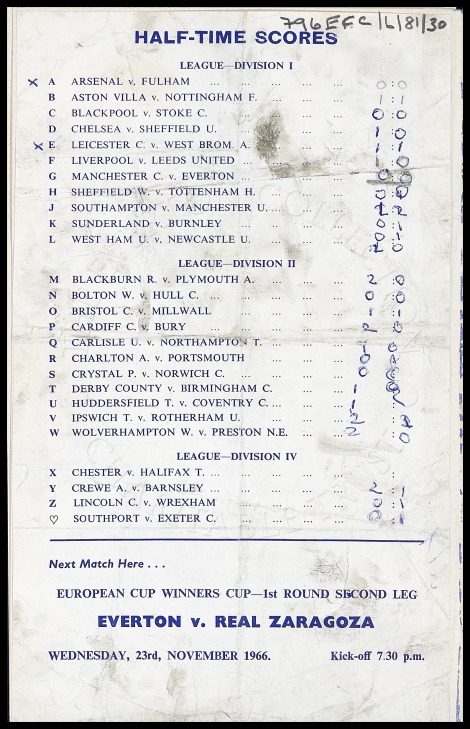 796 EFC/6/81/30
HALF-TIME SCORES
LEAGUE—DIVISION I
x A ARSENAL v. FULHAM ... ... ... ... 0 : 0
B ASTON VILLA v. NOTTINGHAM F. ... ... ...
C BLACKPOOL v. STOKE C. ... ... ... 0
D CHELSEA v. SHEFFIELD U. ... ... ...
x E LEICESTER C. v. WEST BROM. A. ... ...
F LIVERPOOL v. LEEDS UNITED ... ... ...
G MANCHESTER C. v. EVERTON ... ... ...
H SHEFFIELD W. v. TOTTENHAM H. ... ...
J SOUTHAMPTON v. MANCHESTER U. ... ... ...
K SUNDERLAND v. BURNLEY ... ... ...
L WEST HAM U. v. NEWCASTLE U. ... ... ...
LEAGUE—DIVISION II
M BLACKBURN R. v. PLYMOUTH A. ... ... ... 2 0
N BOLTON W. v. HULL C. ... ... ... 0
O BRISTOL C. v. MILLWALL ... ... ...
P CARDIFF C. v. BURY ... ... ... P
Q CARLISLE U. v. NORTHAMPTON T. ... ... ...
R CHARLTON A. v. PORTSMOUTH ... ... ...
S CRYSTAL P. v. NORWICH C. ... ... ...
T DERBY COUNTY v. BIRMINGHAM C. ... ...
U HUDDERSFIELD T. v. COVENTRY C. ... ... ...
V IPSWICH T. v. ROTHERHAM U. ... ... ...
W WOLVERHAMPTON W. v. PRESTON N.E. ... ... 2 0
LEAGUE—DIVISION IV
X CHESTER v. HALIFAX T. ... ... ... ...
Y CREWE A. v. BARNSLEY ... ... ... ... 2
Z LINCOLN C. v. WREXHAM ... ... ...
♡ SOUTHPORT v. EXETER C. ... ... ...
Next Match Here . . .
EUROPEAN CUP WINNERS CUP—1st ROUND SECOND LEG
EVERTON v. REAL ZARAGOZA
WEDNESDAY, 23rd, NOVEMBER 1966. Kick-off 7.30 p.m.